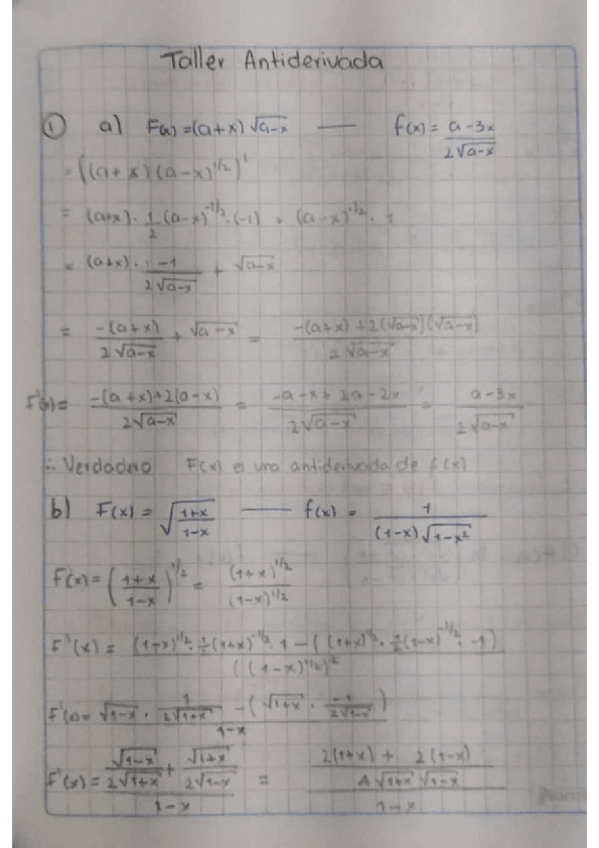 Taller Antiderivada
① a) F(x) = (a+x) √(a-x) — f(x) = (a-3x)/(2√(a-x))
= ((a+x)(a-x)^(1/2))'
= (a+x) · 1/2 (a-x)^(-1/2) · (-1) + (a-x)^(1/2) · 1
= (a+x) · (-1)/(2√(a-x)) + √(a-x)
= (-(a+x))/(2√(a-x)) + √(a-x) = (-(a+x) + 2(√(a-x))(√(a-x)))/(2√(a-x))
F'(x) = (-(a+x)+2(a-x))/(2√(a-x)) = (-a-x+2a-2x)/(2√(a-x)) = (a-3x)/(2√(a-x))
∴ Verdadero F(x) es una antiderivada de f(x)
b) F(x) = √((1+x)/(1-x)) — f(x) = 1/((1-x)√(1-x²))
F(x) = ((1+x)/(1-x))^(1/2) = (1+x)^(1/2)/(1-x)^(1/2)
F'(x) = ((1-x)^(1/2) · 1/2 (1+x)^(-1/2) · 1 - ((1+x)^(1/2) · 1/2 (1-x)^(-1/2) · -1))/(((1-x)^(1/2))²)
F'(x) = (√(1-x) · 1/(2√(1+x)) - (√(1+x) · (-1)/(2√(1-x))))/(1-x)
F'(x) = (√(1-x)/(2√(1+x)) + √(1+x)/(2√(1-x)))/(1-x) = ((2(1+x) + 2(1-x))/(4√(1+x)√(1-x)))/(1-x)